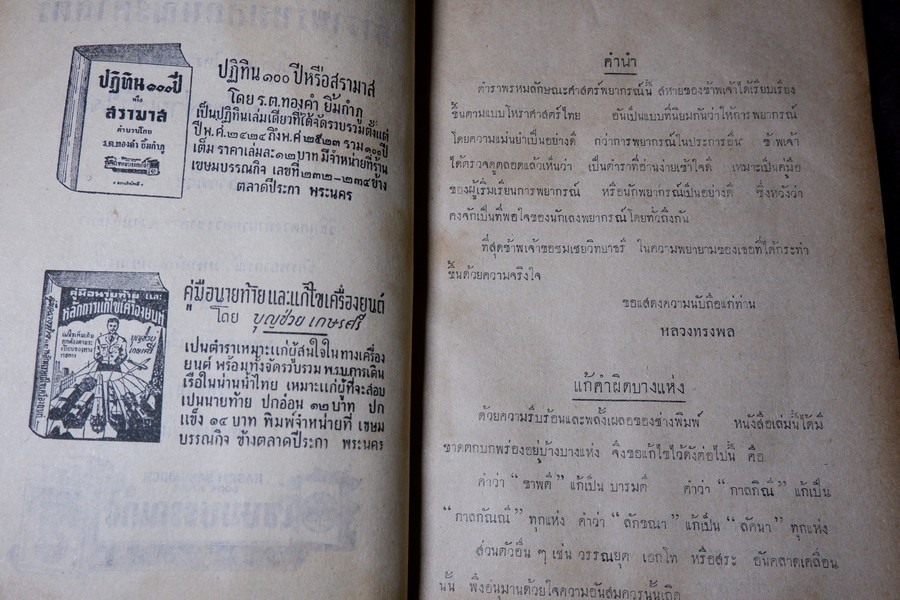 ปฏิทิน ๑๐๐ ปี
หรือ
สรามาส
คำนวณโดย
ร.ต.ทองคำ ยิ้มกำภู
ปฏิทิน ๑๐๐ ปีหรือสรามาส
โดย ร.ต.ทองคำ ยิ้มกำภู
เป็นปฏิทินเล่มเดียวที่ได้จัดรวบรวมตั้งแต่
ปีพ.ศ.๒๔๒๔ ถึงพ.ศ ๒๕๒๓ รวม ๑๐๐ ปี
เต็ม ราคาเล่มละ ๑๒ บาท มีจำหน่ายที่ร้าน
เขษมบรรณกิจ เลขที่ ๒๓๒ – ๒๓๔ ข้าง
ตลาดปีระกา พระนคร
คู่มือนายท้าย และ
หลักการแก้ไขเครื่องยนต์
บุญช่วย
เกษรศรี
คู่มือนายท้าย และแก้ไขเครื่องยนต์
โดย บุญช่วย เกษรศรี
เปนตำราเหมาะแก่ผู้สนใจในทางเครื่อง
ยนต์ พร้อมทั้งจัดรวบรวม พ.ร.บ.การเดิน
เรือในน่านน้ำไทย เหมาะแก่ผู้ที่จะสอบ
เปนนายท้าย ปกอ่อน ๑๒ บาท ปก
แข็ง ๑๔ บาท พิมพ์จำหน่ายที่ เขษม
บรรณกิจ ข้างตลาดปีระกา พระนคร
คำนำ
ตำราพรหมลักษณะศาสตร์พยากรณ์นี้ สหายของข้าพเจ้าได้เรียบเรียง
ขึ้นตามแบบโหราศาสตร์ไทย อันเป็นแบบที่นิยมกันว่าให้การพยากรณ์
โดยความแม่นยำเป็นอย่างดี กว่าการพยากรณ์ในประการอื่น ข้าพเจ้า
ได้ตรวจดูตลอดแล้วเห็นว่า เป็นตำราที่อ่านง่ายเข้าใจดี เหมาะเป็นคู่มือ
ของผู้เริ่มเรียนการพยากรณ์ หรือนักพยากรณ์เป็นอย่างดี ซึ่งหวังว่า
คงจักเป็นที่พอใจของนักเลงพยากรณ์โดยทั่วถึงกัน
ที่สุดข้าพเจ้าขอชมเชยวิทยาธร์ ในความพยายามของเธอที่ได้กระทำ
ขึ้นด้วยความจริงใจ
ขอแสดงความนับถือแก่ท่าน
หลวงทรงพล
แก้คำผิดบางแห่ง
ด้วยความรีบร้อนและพลั้งเผลอของช่างพิมพ์ หนังสือเล่มนี้ได้มี
ขาดตกบกพร่องอยู่บ้างบางแห่ง จึงขอแก้ไขไว้ดังต่อไปนี้ คือ
คำว่า “ ชาพตี ” แก้เป็น บารมตี คำว่า “ กาลกิณี ” แก้เป็น
“ กาลกัณณี ” ทุกแห่ง คำว่า “ ลักขณา ” แก้เป็น “ ลัคนา ” ทุกแห่ง
ส่วนตัวอื่น ๆ เช่น วรรณยุต เอกโท หรือสระ อันคลาดเคลื่อน
นั้น พึงอนุมานด้วยใจความอันสมควรนั้นเถิด